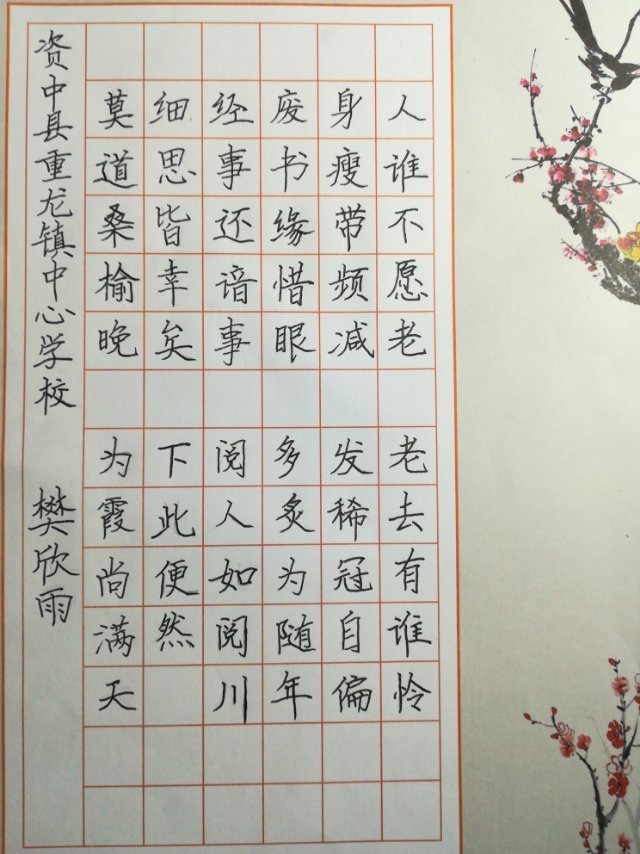 人谁不愿老 老去有谁怜
身瘦带频减 发稀冠自偏
废书缘惜眼 多炙为随年
经事还谙事 阅人如阅川
细思皆幸矣 下此便然
莫道桑榆晚 为霞尚满天
资中县重龙镇中心学校 樊欣雨